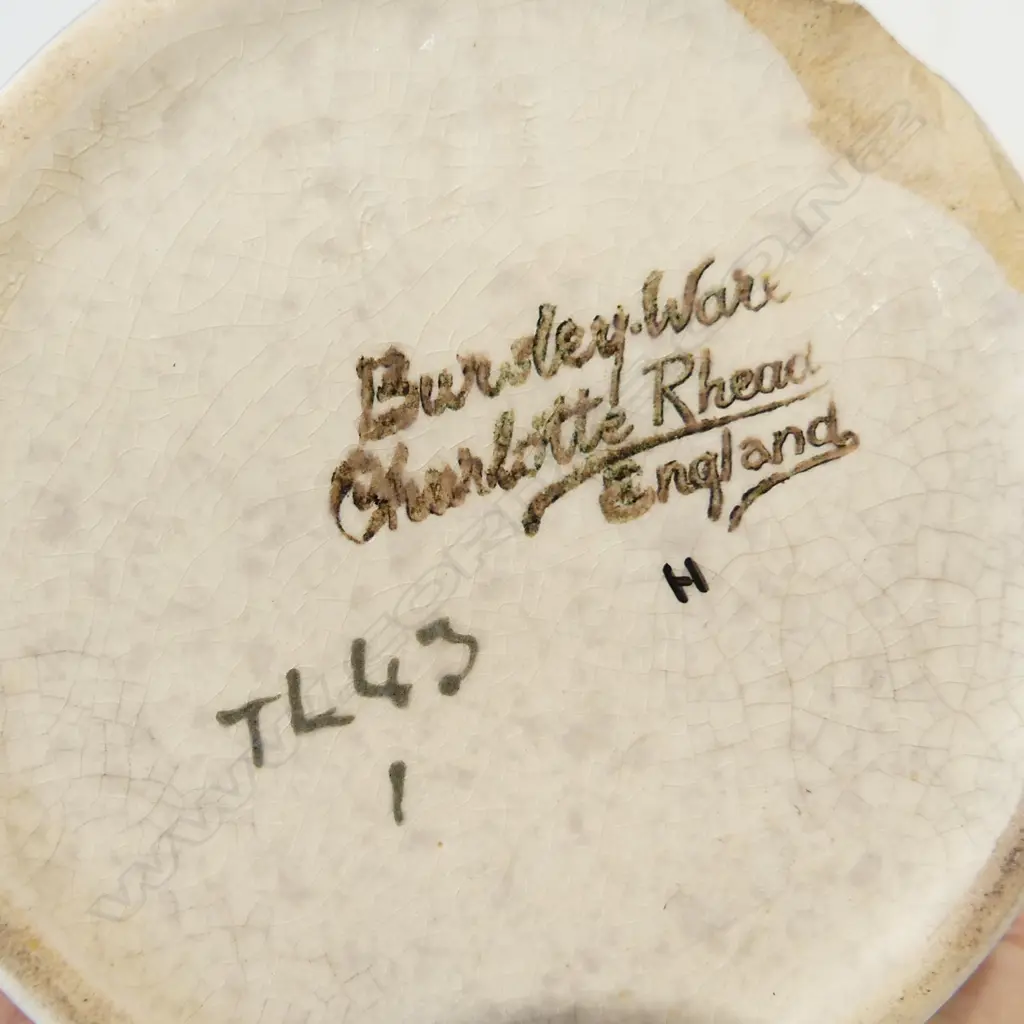 Bursley-Ware
Charlotte Rhead
England
H
TL43
1